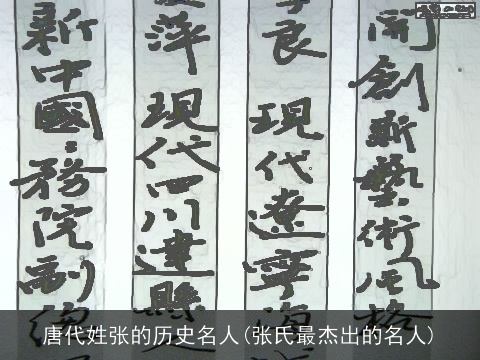 開創新藝術風格
良 現代遼寧海
萍 現代四川達縣
新中國〻務院副總
唐代姓张的历史名人(张氏最杰出的名人)